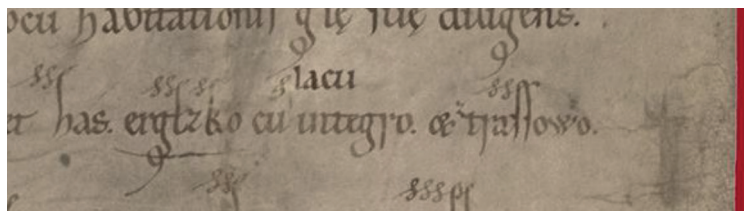 ocū habitationis glę suę diligens.
lacu
et has. erglzko cū integro. & trassowo.